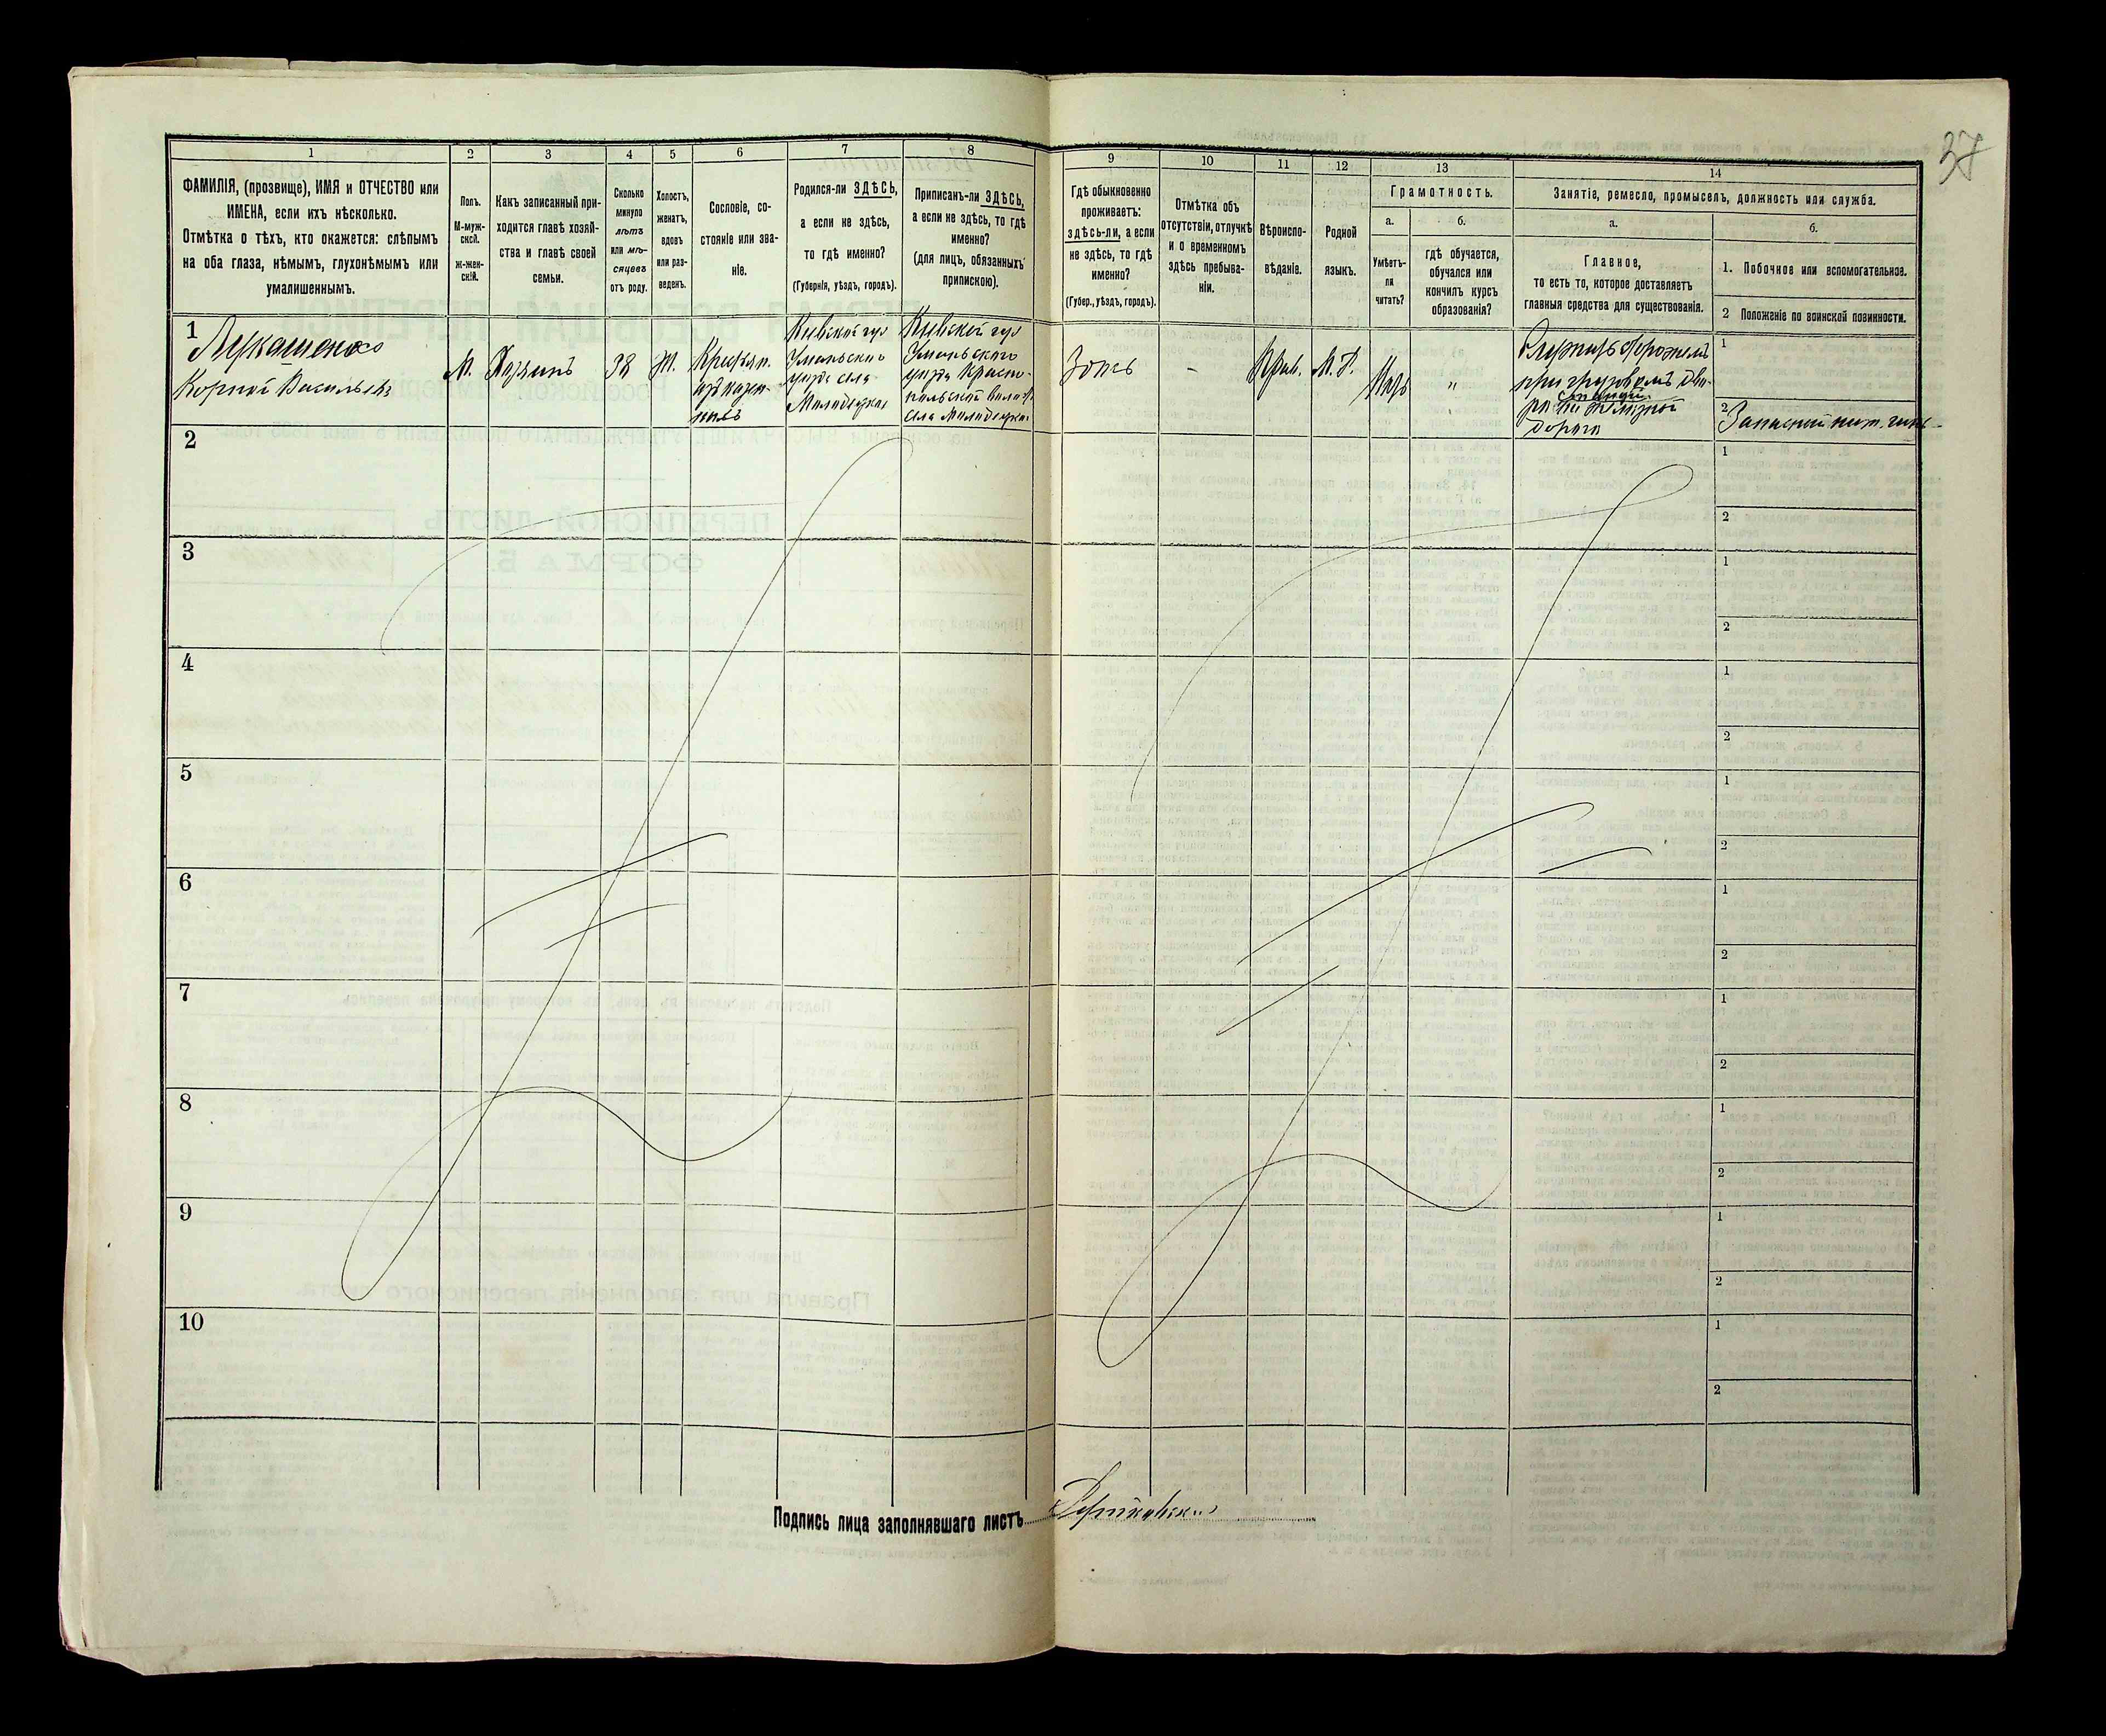 37
1 2 3 4 5 6 7 8
ФАМИЛІЯ, (прозвище), ИМЯ и ОТЧЕСТВО или
ИМЕНА, если ихъ нѣсколько.
Отмѣтка о тѣхъ, кто окажется: слѣпымъ
на оба глаза, нѣмымъ, глухонѣмымъ или
умалишеннымъ.
Полъ.
М-муж-
ской.
ж-жен-
скій.
Какъ записанный при-
ходится главѣ хозяй-
ства и главѣ своей
семьи.
Сколько
минуло
лѣтъ
или мѣ-
сяцевъ
отъ роду.
Холостъ,
женатъ,
вдовъ
или раз-
веденъ.
Сословіе, со-
стояніе или зва-
ніе.
Родился-ли ЗДѢСЬ,
а если не здѣсь,
то гдѣ именно?
(Губернія, уѣздъ, городъ).
Приписанъ-ли ЗДѢСЬ,
а если не здѣсь, то гдѣ
именно?
(для лицъ, обязанныхъ
припискою).
9 10 11 12 13 14
Гдѣ обыкновенно
проживаетъ:
здѣсь-ли, а если
не здѣсь, то гдѣ
именно?
(Губер., уѣздъ, городъ).
Отмѣтка объ
отсутствіи, отлучкѣ
и о временномъ
здѣсь пребыва-
ніи.
Вѣроиспо-
вѣданіе.
Родной
языкъ.
Грамотность.
а.
Умѣетъ-
ли
читать?
б.
гдѣ обучается,
обучался или
кончилъ курсъ
образованія?
Занятіе, ремесло, промыселъ, должность или служба.
а.
Главное,
то есть то, которое доставляетъ
главныя средства для существованія.
б.
1. Побочное или вспомогательное.
2 Положеніе по воинской повинности.
1
Лукашенко
Корней Васильевъ
М.
Хозяинъ
38
Ж.
Крестьян.
Кіевской губ
Уманьскаго
уѣзда села
Кіевской губ
Уманьскаго
уѣзда Красно-
польской волост
села
Здѣсь
-
Прав.
М. Р.
"
Служитъ сторожемъ
при грузовомъ дво-
рѣ
станціи
желѣзной
дороги
1
2 Запасной
2
1
2
3
1
2
4
1
2
5
1
2
6
1
2
7
1
2
8
1
2
9
1
2
10
1
2
Подпись лица заполнявшаго листъ